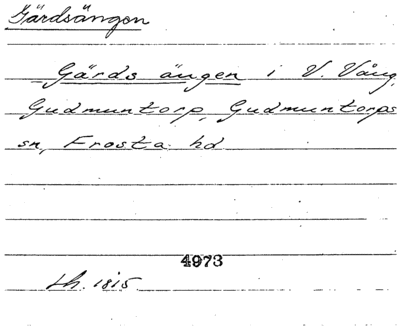 Gärdsängen
Gärds ängen i V. Vång,
Gudmuntorp, Gudmuntorps
sn, Frosta hd
4973
Lh. 1815